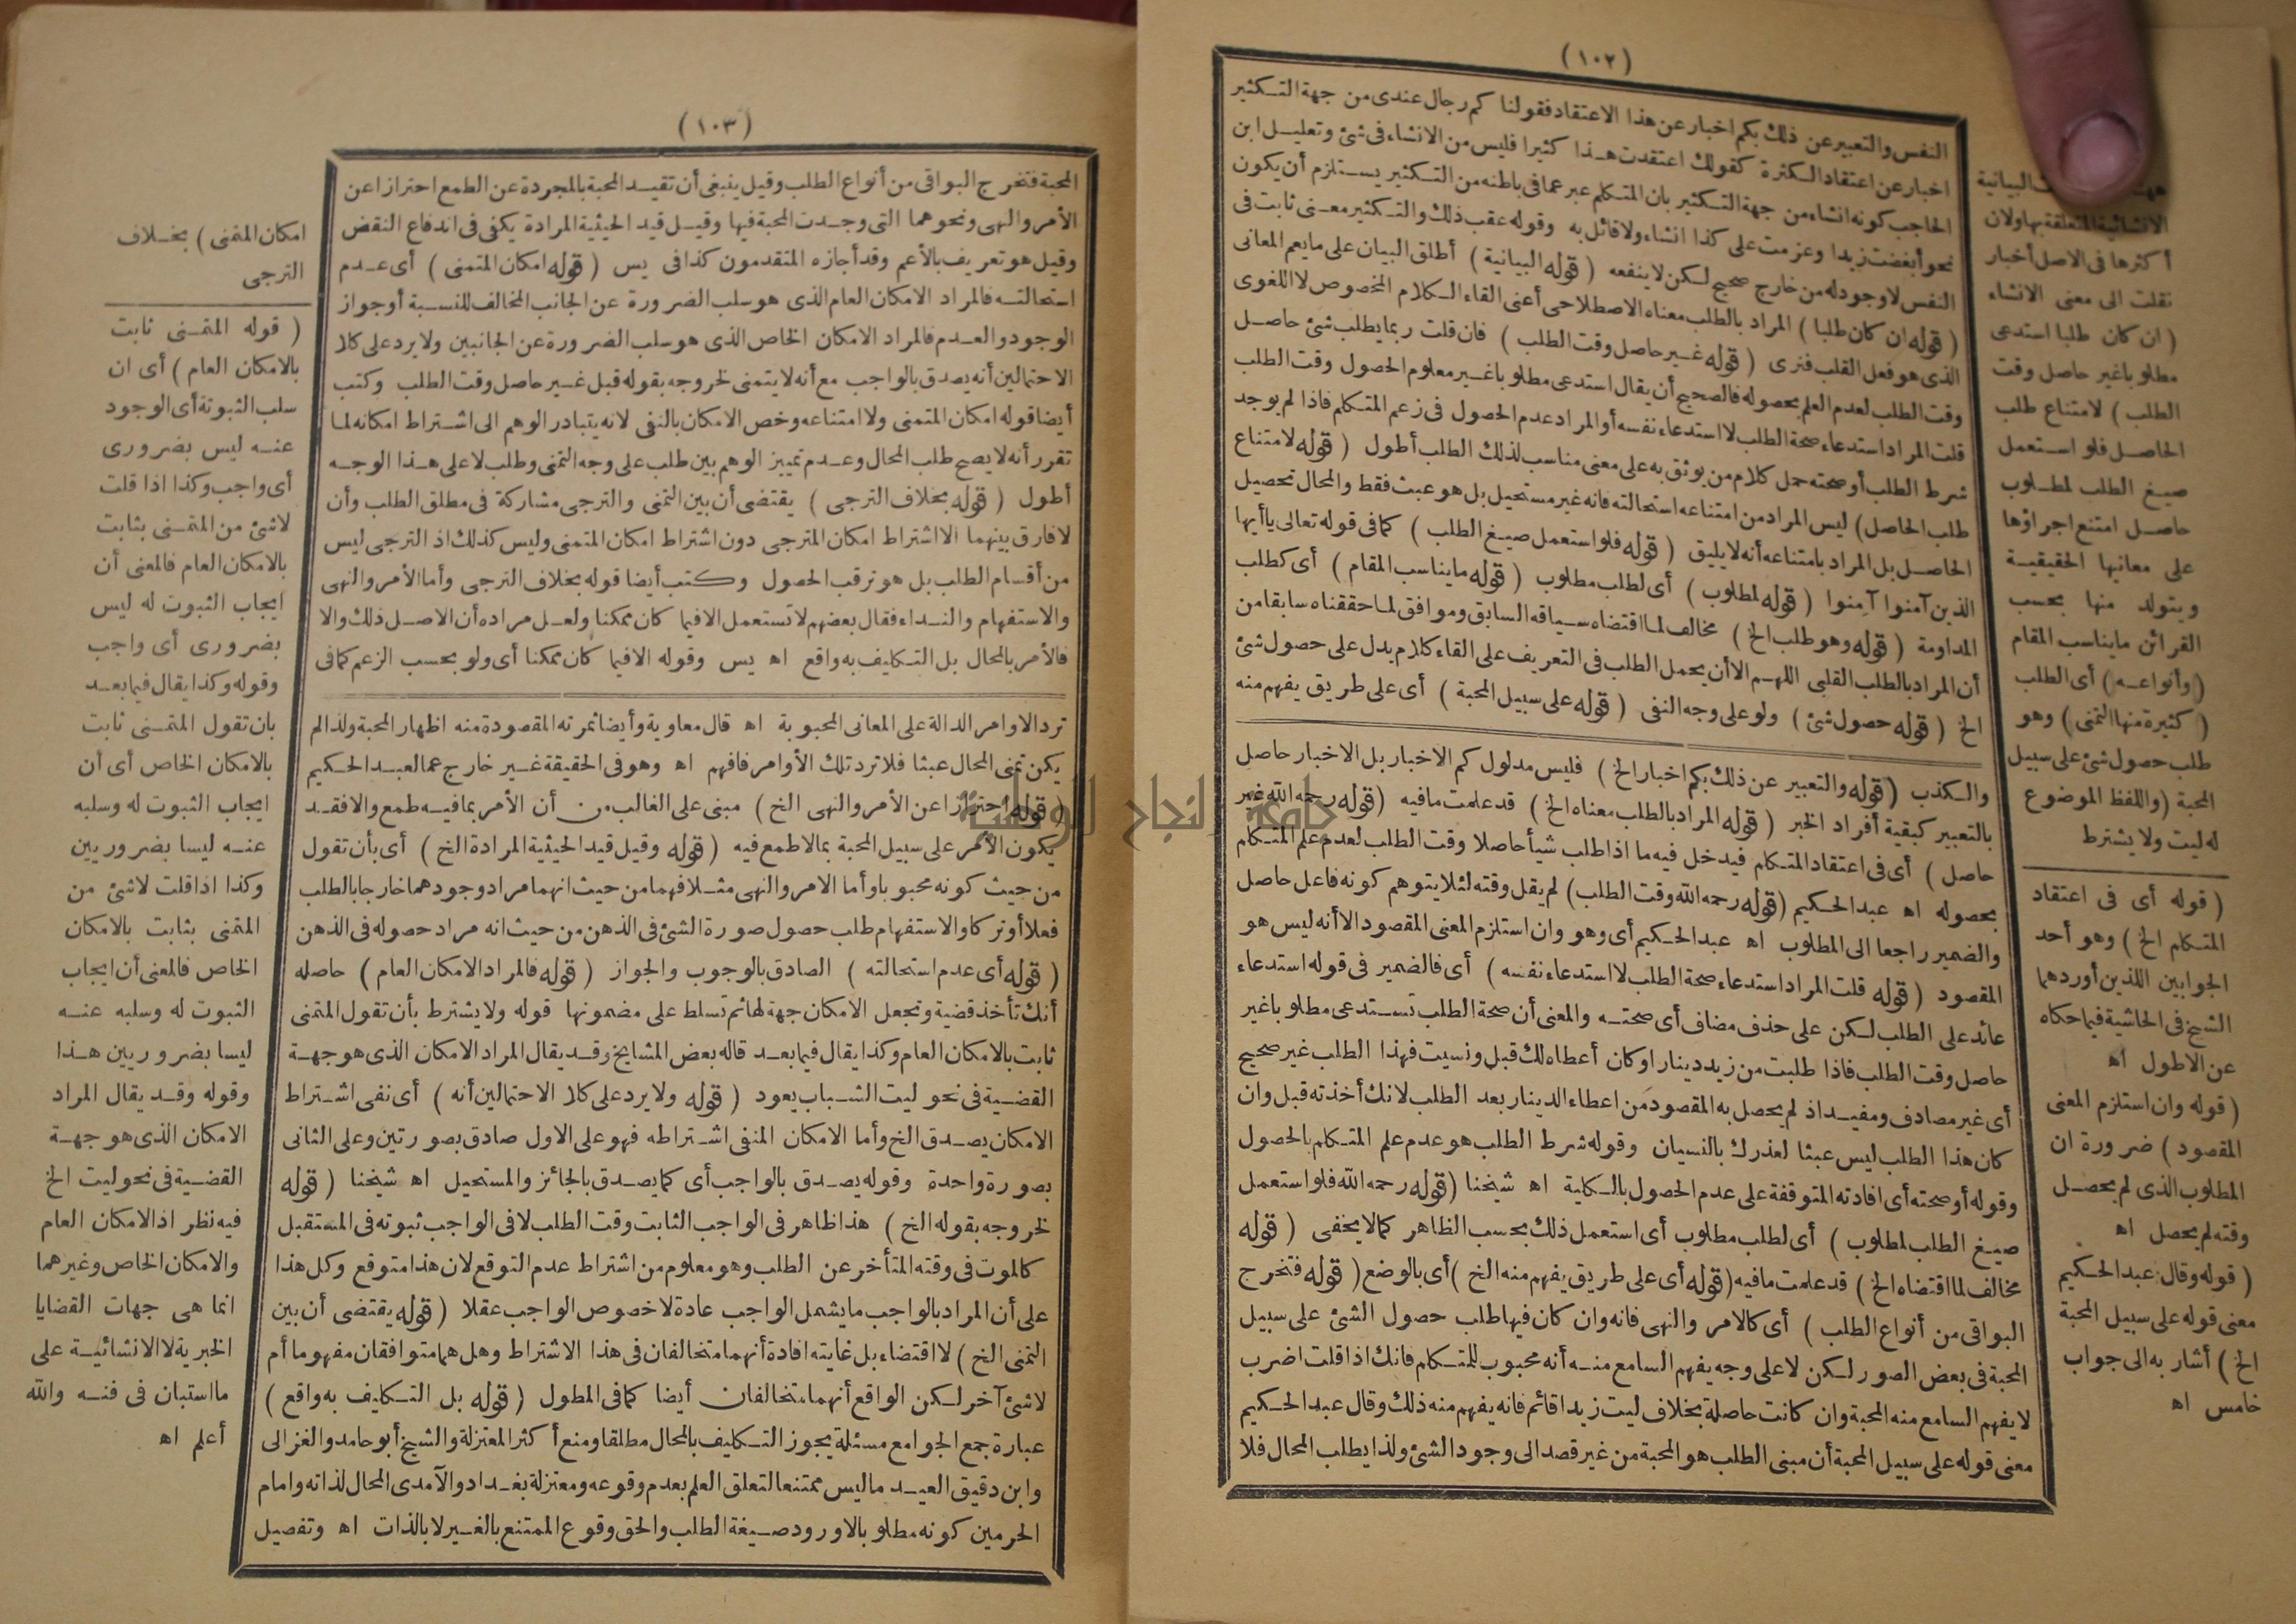 (١٠٢)
النفس والتعبير عن ذلك بكم اخبار عن هذا الاعتقاد فقولنا كم رجال عندى من جهة التكثير
اخبار عن اعتقاد الكثرة كقولك اعتقدت هذا كثيرا فليس من الانشاء فى شئ وتعليل ابن
الحاجب كونه انشاء من جهة التكثير بان المتكلم عبر عما فى باطنه من التكثير يستلزم أن يكون
نحو أبغضت زيدا وعزمت على كذا انشاء ولا قائل به وقوله عقب ذلك والتكثير معنى ثابت فى
النفس لا وجود له من خارج صحيح لكن لا ينفعه (قوله البيانية) أطلق البيان على ما يعم المعانى
(قوله ان كان طلبا) المراد بالطلب معناه الاصطلاحى أعنى القاء الكلام المخصوص لا اللغوى
الذى هو فعل القلب فنرى (قوله غير حاصل وقت الطلب) فان قلت ربما يطلب شئ حاصل
وقت الطلب لعدم العلم بحصوله فالصحيح أن يقال استدعى مطلوبا غير معلوم الحصول وقت الطلب
قلت المراد استدعاء صحة الطلب لا استدعاء نفسه أو المراد عدم الحصول فى زعم المتكلم فاذا لم يوجد
شرط الطلب أو صحته حمل كلام من يوثق به على معنى مناسب لذلك الطلب أطول (قوله لامتناع
طلب الحاصل) ليس المراد من امتناعه استحالته فانه غير مستحيل بل هو عبث فقط والمحال تحصيل
الحاصل بل المراد بامتناعه أنه لا يليق (قوله فلو استعمل صيغ الطلب) كما فى قوله تعالى يا أيها
الذين آمنوا آمِنوا (قوله لمطلوب) أى لطلب مطلوب (قوله ما يناسب المقام) أى كطلب
المداومة (قوله وهو طلب الخ) مخالف لما اقتضاه سياقه السابق وموافق لما حققناه سابقا من
أن المراد بالطلب القلبى اللهم الا أن يحمل الطلب فى التعريف على القاء كلام يدل على حصول شئ
الخ (قوله حصول شئ) ولو على وجه النفى (قوله على سبيل المحبة) أى على طريق يفهم منه
والكذب (قوله والتعبير عن ذلك بكم اخبار الخ) فليس مدلول كم الاخبار بل الاخبار حاصل
بالتعبير كبقية أفراد الخبر (قوله المراد بالطلب معناه الخ) قد علمت ما فيه (قوله رحمه الله غير
حاصل) أى فى اعتقاد المتكلم فيدخل فيه ما اذا طلب شيأ حاصلا وقت الطلب لعدم علم المتكلم
بحصوله اه عبد الحكيم (قوله رحمه الله وقت الطلب) لم يقل وقته لئلا يتوهم كونه فاعل حاصل
والضمير راجعا الى المطلوب اه عبد الحكيم أى وهو وان استلزم المعنى المقصود الا أنه ليس هو
المقصود (قوله قلت المراد استدعاء صحة الطلب لا استدعاء نفسه) أى فالضمير فى قوله استدعاء
عائد على الطلب لكن على حذف مضاف أى صحته والمعنى أن صحة الطلب تستدعى مطلوبا غير
حاصل وقت الطلب فاذا طلبت من زيد دينارا وكان أعطاه لك قبل ونسيت فهذا الطلب غير صحيح
أى غير مصادف ومفيد اذ لم يحصل به المقصود من اعطاء الدينار بعد الطلب لانك أخذته قبل وان
كان هذا الطلب ليس عبثا لعذرك بالنسيان وقوله شرط الطلب هو عدم علم المتكلم بالحصول
وقوله أو صحته أى افادته المتوقفة على عدم الحصول بالكلية اه شيخنا (قوله رحمه الله فلو استعمل
صيغ الطلب لمطلوب) أى لطلب مطلوب أى استعمل ذلك بحسب الظاهر كما لا يخفى (قوله
مخالف لما اقتضاه الخ) قد علمت ما فيه (قوله أى على طريق يفهم منه الخ) أى بالوضع (قوله فتخرج
البواقى من أنواع الطلب) أى كالامر والنهى فانه وان كان فيها طلب حصول الشئ على سبيل
المحبة فى بعض الصور لكن لا على وجه يفهم السامع منه أنه محبوب للمتكلم فانك اذا قلت اضرب
لا يفهم السامع منه المحبة وان كانت حاصلة بخلاف ليت زيدا قائم فانه يفهم منه ذلك وقال عبد الحكيم
معنى قوله على سبيل المحبة أن مبنى الطلب هو المحبة من غير قصد الى وجود الشئ ولذا يطلب المحال فلا
البيانية
الانشائية المتعلقة بها ولان
أكثرها فى الاصل أخبار
نقلت الى معنى الانشاء
(ان كان طلبا استدعى
مطلوبا غير حاصل وقت
الطلب) لامتناع طلب
الحاصل فلو استعمل
صيغ الطلب لمطلوب
حاصل امتنع اجراؤها
على معانيها الحقيقية
ويتولد منها بحسب
القرائن ما يناسب المقام
(وأنواعه) أى الطلب
(كثيرة منها التمنى) وهو
طلب حصول شئ على سبيل
المحبة (واللفظ الموضوع
له ليت ولا يشترط
(قوله أى فى اعتقاد
المتكلم الخ) وهو أحد
الجوابين اللذين أوردهما
الشيخ فى الحاشية فيما حكاه
عن الاطول اه
(قوله وان استلزم المعنى
المقصود) ضرورة ان
المطلوب الذى لم يحصل
وقته لم يحصل اه
(قوله وقال عبد الحكيم
معنى قوله على سبيل المحبة
الخ) أشار به الى جواب
خامس اه
(١٠٣)
المحبة فتخرج البواقى من أنواع الطلب وقيل ينبغى أن تقيد المحبة بالمجردة عن الطمع احترازا عن
الأمر والنهى ونحوهما التى وجدت المحبة فيها وقيل قيد الحيثية المرادة يكفى فى اندفاع النقض
وقيل هو تعريف بالأعم وقد أجازه المتقدمون كذا فى يس (قوله امكان المتمنى) أى عدم
استحالته فالمراد الامكان العام الذى هو سلب الضرورة عن الجانب المخالف للنسبة أو جواز
الوجود والعدم فالمراد الامكان الخاص الذى هو سلب الضرورة عن الجانبين ولا يرد على كلا
الاحتمالين أنه يصدق بالواجب مع أنه لا يتمنى لخروجه بقوله قبل غير حاصل وقت الطلب وكتب
أيضا قوله امكان المتمنى ولا امتناعه وخص الامكان بالنفى لانه يتبادر الوهم الى اشتراط امكانه لما
تقرر أنه لا يصح طلب المحال وعدم تمييز الوهم بين طلب على وجه التمنى وطلب لا على هذا الوجه
أطول (قوله بخلاف الترجى) يقتضى أن بين التمنى والترجى مشاركة فى مطلق الطلب وأن
لا فارق بينهما الا اشتراط امكان المترجى دون اشتراط امكان المتمنى وليس كذلك اذ الترجى ليس
من أقسام الطلب بل هو ترقب الحصول وكتب أيضا قوله بخلاف الترجى وأما الأمر والنهى
والاستفهام والنداء فقال بعضهم لا تستعمل الا فيما كان ممكنا ولعل مراده أن الاصل ذلك والا
فالأمر بالمحال بل التكليف به واقع اه يس وقوله الا فيما كان ممكنا أى ولو بحسب الزعم كما فى
ترد الاوامر الدالة على المعانى المحبوبة اه قال معاوية وأيضا ثمرته المقصودة منه اظهار المحبة ولذا لم
يكن تمنى المحال عبثا فلا ترد تلك الأوامر فافهم اه وهو فى الحقيقة غير خارج عما لعبد الحكيم
(قوله احترازا عن الأمر والنهى الخ) مبنى على الغالب من أن الأمر بما فيه طمع والا فقد
يكون الأمر على سبيل المحبة بما لا طمع فيه (قوله وقيل قيد الحيثية المرادة الخ) أى بأن تقول
من حيث كونه محبوبا وأما الامر والنهى مثلا فهما من حيث انهما مراد وجودهما خارجا بالطلب
فعلا أو تركا والاستفهام طلب حصول صورة الشئ فى الذهن من حيث انه مراد حصوله فى الذهن
(قوله أى عدم استحالته) الصادق بالوجوب والجواز (قوله فالمراد الامكان العام) حاصله
أنك تأخذ قضية وتجعل الامكان جهة لها ثم تسلط على مضمونها قوله ولا يشترط بأن تقول المتمنى
ثابت بالامكان العام وكذا يقال فيما بعد قاله بعض المشايخ وقد يقال المراد الامكان الذى هو جهة
القضية فى نحو ليت الشباب يعود (قوله ولا يرد على كلا الاحتمالين أنه) أى نفى اشتراط
الامكان يصدق الخ وأما الامكان المنفى اشتراطه فهو على الاول صادق بصورتين وعلى الثانى
بصورة واحدة وقوله يصدق بالواجب أى كما يصدق بالجائز والمستحيل اه شيخنا (قوله
لخروجه بقوله الخ) هذا ظاهر فى الواجب الثابت وقت الطلب لا فى الواجب ثبوته فى المستقبل
كالموت فى وقته المتأخر عن الطلب وهو معلوم من اشتراط عدم التوقع لان هذا متوقع وكل هذا
على أن المراد بالواجب ما يشمل الواجب عادة لا خصوص الواجب عقلا (قوله يقتضى أن بين
التمنى الخ) لا اقتضاء بل غايته افادة أنهما متخالفان فى هذا الاشتراط وهل هما متوافقان مفهوما أم
لا شئ آخر لكن الواقع أنهما متخالفان أيضا كما فى المطول (قوله بل التكليف به واقع)
عبارة جمع الجوامع مسئلة يجوز التكليف بالمحال مطلقا ومنع أكثر المعتزلة والشيخ أبو حامد والغزالى
وابن دقيق العيد ما ليس ممتنعا لتعلق العلم بعدم وقوعه ومعتزلة بغداد والآمدى المحال لذاته وامام
الحرمين كونه مطلوبا لا ورود صيغة الطلب والحق وقوع الممتنع بالغير لا بالذات اه وتفصيل
امكان المتمنى) بخلاف
الترجى
(قوله المتمنى ثابت
بالامكان العام) أى ان
سلب الثبوتة أى الوجود
عنه ليس بضرورى
أى واجب وكذا اذا قلت
لا شئ من المتمنى بثابت
بالامكان العام فالمعنى أن
ايجاب الثبوت له ليس
بضرورى أى واجب
وقوله وكذا يقال فيما بعد
بان تقول المتمنى ثابت
بالامكان الخاص أى أن
ايجاب الثبوت له وسلبه
عنه ليسا بضروريين
وكذا اذا قلت لا شئ من
المتمنى بثابت بالامكان
الخاص فالمعنى أن ايجاب
الثبوت له وسلبه عنه
ليسا بضروريين هذا
وقوله وقد يقال المراد
الامكان الذى هو جهة
القضية فى نحو ليت الخ
فيه نظر اذ الامكان العام
والامكان الخاص وغيرهما
انما هى جهات القضايا
الخبرية لا الانشائية على
ما استبان فى فنه والله
أعلم اه
جامعة النجاح الوطنية